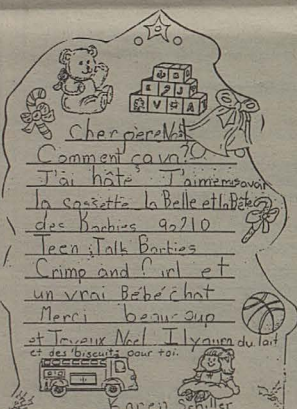 Cher pere Noël
Comment ça va?
J'ai hâte J'aimerais avoir
la cassette La Belle et la Bête
des Barbies 90210
Teen Talk Barbies
Crimp and Curl et
un vrai Bébé chat
Merci beaucoup
et Joyeux Noël Il y aura du lait
et des biscuits pour toi.
Karen Schiller